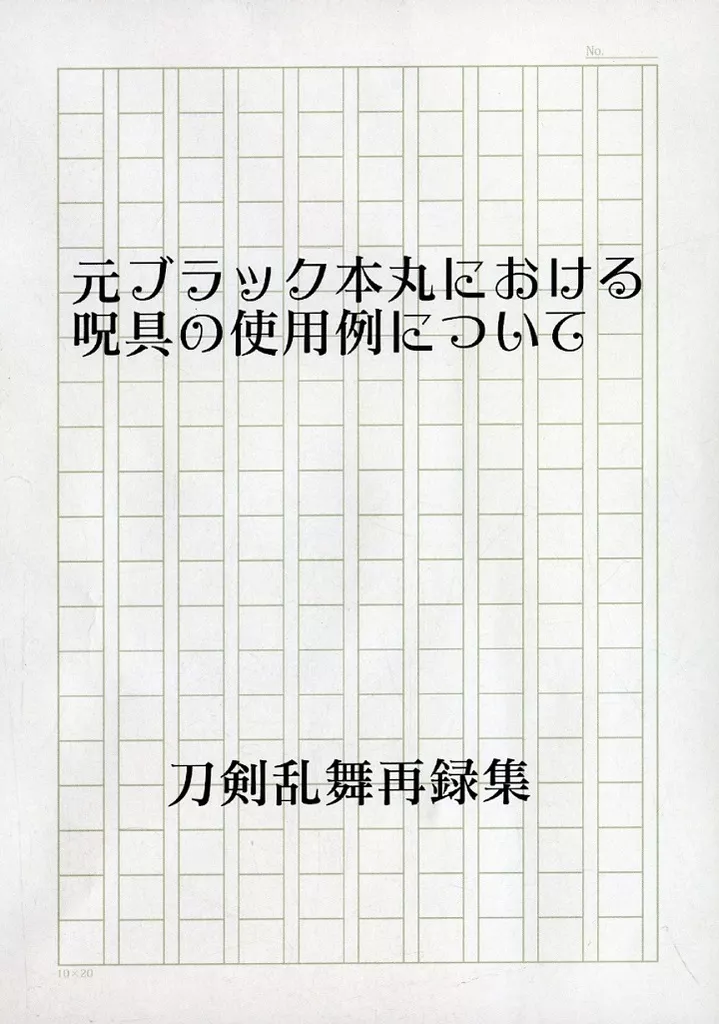 No.
元ブラック本丸における
呪具の使用例について
刀剣乱舞再録集
10×20